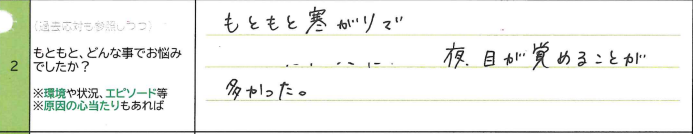 (過去応対も参照しつつ)
2
もともと、どんな事でお悩み
でしたか？
※環境や状況、エピソード等
※原因の心当たりもあれば
もともと寒がりで
夜、目が覚めることが
多かった。